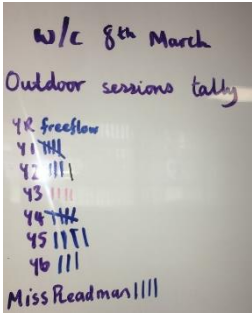 w/c 8th March
Outdoor sessions tally
YR freeflow
Y1 𝍸
Y2 ||||
Y3 ||||
Y4 𝍸
Y5 ||||
Y6 |||
Miss Readman ||||